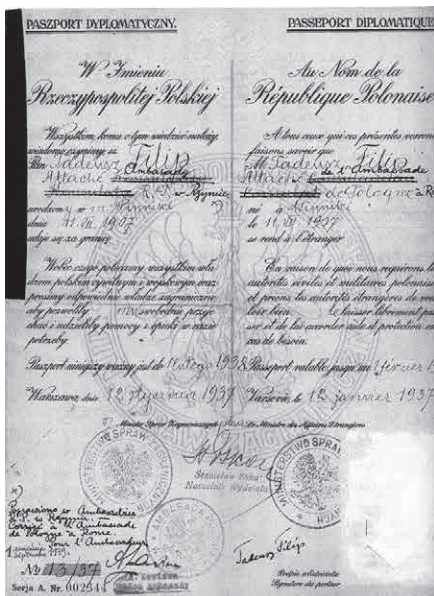 PASZPORT DYPLOMATYCZNY.
W Imieniu
Rzeczypospolitej Polskiej
Wszystkim, komu o tym wiedzieć należy,
wiadomo czynimy, iż
Pan Tadeusz Filip
Attaché Ambasady
R.P. w Rzymie
urodzony w
dnia 11.VII 1907
udaje się za granicę
Wobec czego polecamy wszystkim wła-
dzom polskim cywilnym i wojskowym oraz
prosimy odpowiednie władze zagraniczne
aby pozwoliły mu swobodnie przeje-
chać i udzieliły pomocy i opieki w razie
potrzeby.
Paszport niniejszy ważny jest do 1 lutego 1938
Warszawa, dnia 12 stycznia 1937
PASSEPORT DIPLOMATIQUE
Au Nom de la
République Polonaise
A tous ceux qui ces présentes verront
faisons savoir que
M. Tadeusz Filip
Attaché de l'Ambassade
de Pologne à
né à
le 11.VII
se rend à l'étranger
En raison de quoi nous requérons les
autorités civiles et militaires polonaises
et prions les autorités étrangères de vou-
loir bien le laisser librement pas-
ser et de lui accorder aide et protection en
cas de besoin.
Passeport valable jusqu'au 1 février
Varsovie, le 12 janvier 1937
Minister Spraw Zagranicznych
Le Ministre des Affaires Etrangères
Stanisław
Naczelnik Wydziału
MINISTERSTWO SPRAW ZAGRANICZNYCH
MINISTERSTWO SPRAW
AMBASADA
x)
Poprawiono w Ambasadzie
R.P. w Rzymie.
Corrigé à l'Ambassade
de Pologne à Rome.
Pour l'Ambassadeur
No 13/37
Serja A. Nr. 002544
Tadeusz Filip
Podpis właściciela
Signature du porteur